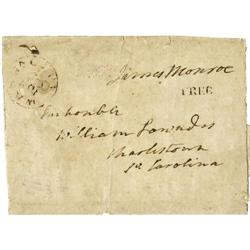 James Monroe
FREE
William Lowndes
Charlestown
So Carolina